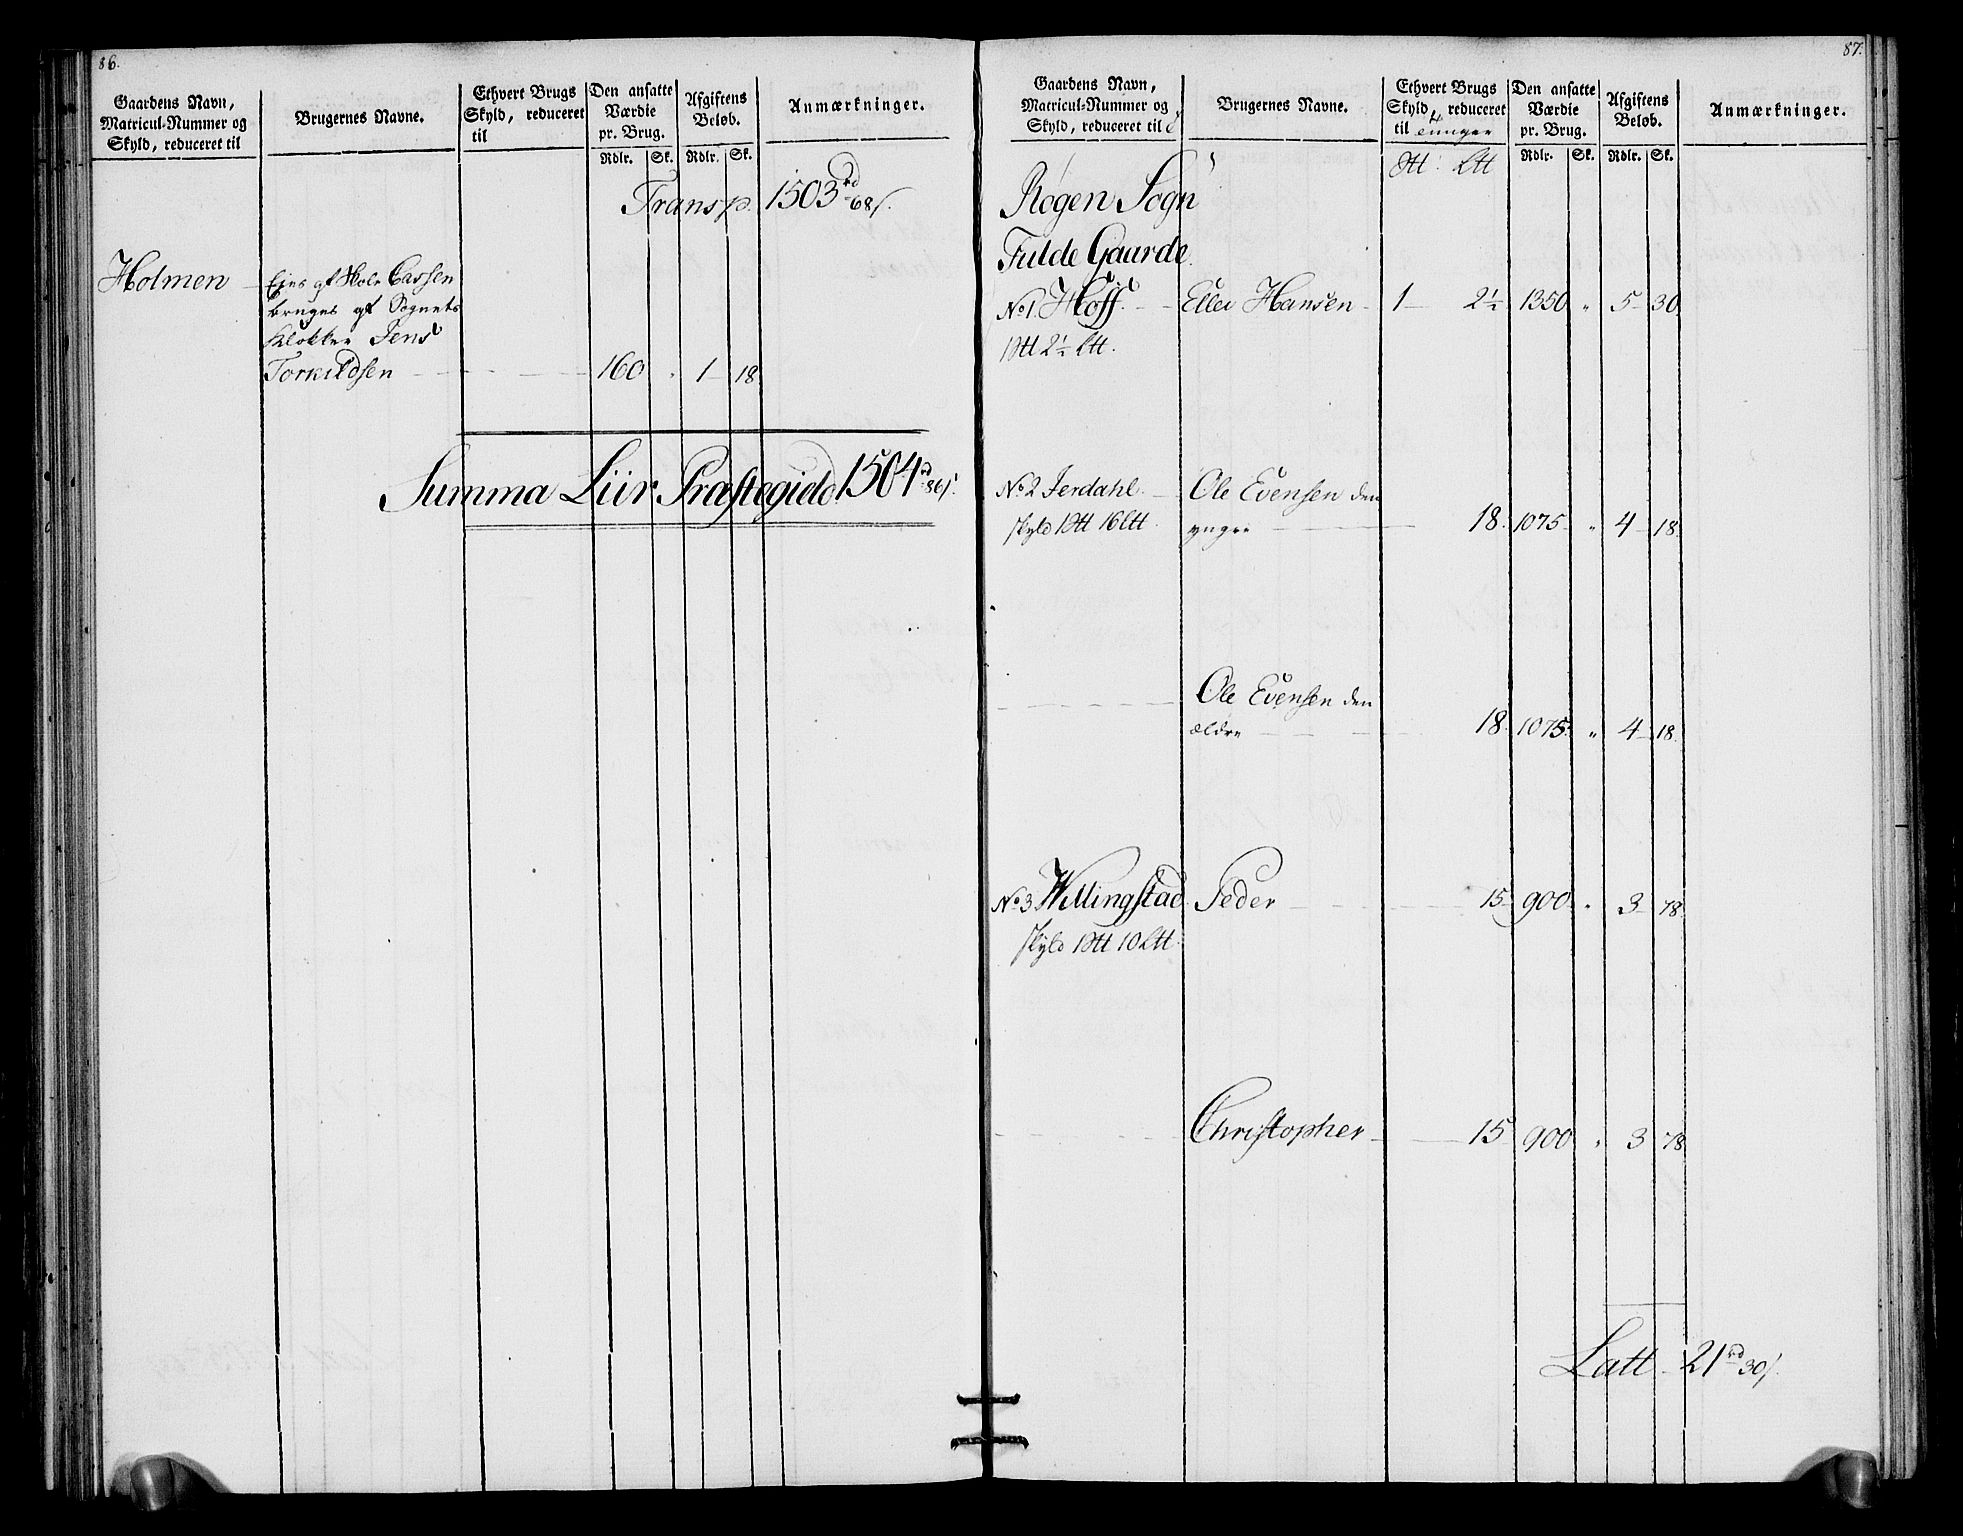 86.
Gaardens Navn,
Matricul-Nummer og
Skyld, reduceret til
Brugernes Navne.
Ethvert Brugs
Skyld, reduceret
til
Den ansatte
Værdie
pr. Brug.
Rdlr. Sk.
Afgiftens
Beløb.
Rdlr. Sk.
Anmærkninger.
Transp. 1503 rd 68 s.
Holmen Ejes af Niels Cassen
bruges af Sognets
Klokker Jens
Torkildsen 160 " 1 18
Summa Liir Præstegield 1504 rd 86 s.
87.
Gaardens Navn,
Matricul-Nummer og
Skyld, reduceret til
Brugernes Navne.
Ethvert Brugs
Skyld, reduceret
til
Den ansatte
Værdie
pr. Brug.
Rdlr. Sk.
Afgiftens
Beløb.
Rdlr. Sk.
Anmærkninger.
Røgen Sogn
Fulde Gaarde
No 1. Hoff. Eller Hansen 1 2½ 1350 " 5 30
2½
No 2 Jerdahl. Ole Evensen den
skyld 16 yngre 18. 1075 " 4 18.
Ole Evensen den
ældre 18. 1075 " 4 18.
No 3 Willingstad Peder 15 900 " 3 78
skyld 10
Christopher 15 900 " 3 78
Latt 21 rd 30 s.